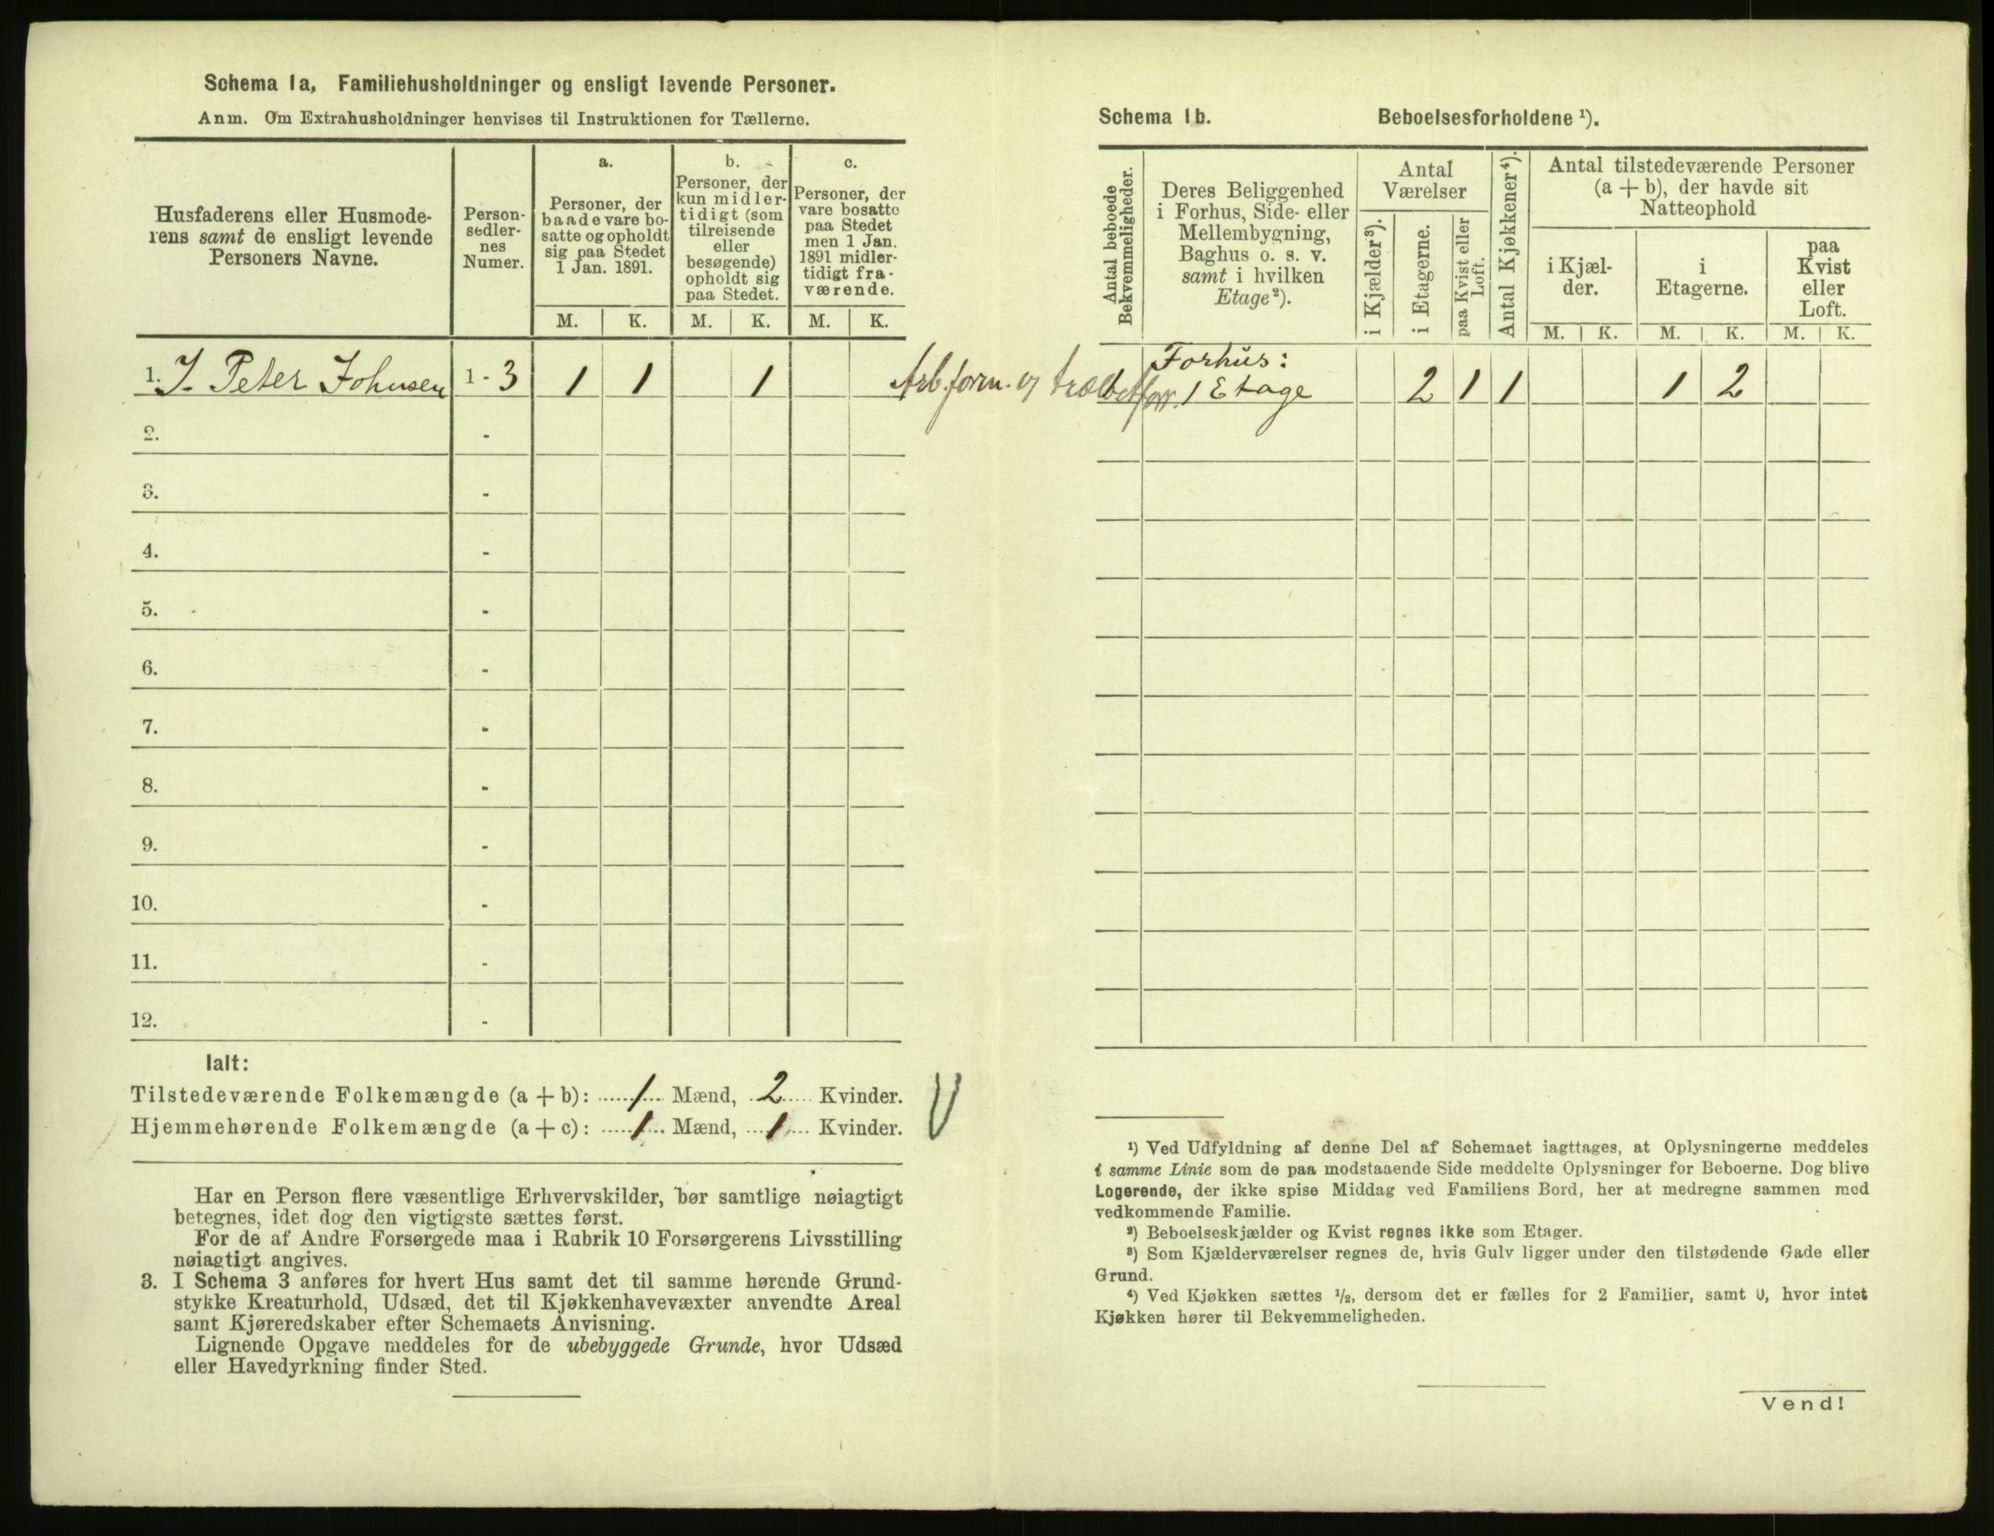 Schema 1a, Familiehusholdninger og ensligt levende Personer.
Anm. Om Extrahusholdninger henvises til Instruktionen for Tællerne.
Husfaderens eller Husmode-
rens samt de ensligt levende
Personers Navne.
Person-
sedler-
nes
Numer.
a.
Personer, der
baade vare bo-
satte og opholdt
sig paa Stedet
1 Jan. 1891.
b.
Personer, der
kun midler-
tidigt (som
tilreisende
eller
besøgende)
opholdt sig
paa Stedet.
c.
Personer, der
vare bosatte
paa Stedet
men 1 Jan.
1891 midler-
tidigt fra-
værende.
M. K. M. K. M. K.
1. J. Peter Johnsen 1 - 3 1 1 1
2. -
3. -
4. -
5. -
6. -
7. -
8. -
9. -
10. -
11. -
12. -
Ialt:
Tilstedeværende Folkemængde (a + b): 1 Mænd, 2 Kvinder.
Hjemmehørende Folkemængde (a + c): 1 Mænd, 1 Kvinder.
Har en Person flere væsentlige Erhvervskilder, bør samtlige nøiagtigt
betegnes, idet dog den vigtigste sættes først.
For de af Andre Forsørgede maa i Rubrik 10 Forsørgerens Livsstilling
nøiagtigt angives.
3. I Schema 3 anføres for hvert Hus samt det til samme hørende Grund-
stykke Kreaturhold, Udsæd, det til Kjøkkenhavevæxter anvendte Areal
samt Kjøreredskaber efter Schemaets Anvisning.
Lignende Opgave meddeles for de ubebyggede Grunde, hvor Udsæd
eller Havedyrkning finder Sted.
Schema 1b. Beboelsesforholdene ¹).
Antal beboede
Bekvemmeligheder.
Deres Beliggenhed
i Forhus, Side- eller
Mellembygning,
Baghus o. s. v.
samt i hvilken
Etage²).
Antal
Værelser
i Kjælder³).
i Etagerne.
paa Kvist eller
Loft.
Antal Kjøkkener⁴).
Antal tilstedeværende Personer
(a + b), der havde sit
Natteophold
i Kjæl-
der.
i
Etagerne.
paa
Kvist
eller
Loft.
M. K. M. K. M. K.
Forhus:
1 Etage 2 1 1 1 2
¹) Ved Udfyldning af denne Del af Schemaet iagttages, at Oplysningerne meddeles
i samme Linie som de paa modstaaende Side meddelte Oplysninger for Beboerne. Dog blive
Logerende, der ikke spise Middag ved Familiens Bord, her at medregne sammen med
vedkommende Familie.
²) Beboelseskjælder og Kvist regnes ikke som Etager.
³) Som Kjælderværelser regnes de, hvis Gulv ligger under den tilstødende Gade eller
Grund.
⁴) Ved Kjøkken sættes ½, dersom det er fælles for 2 Familier, samt 0, hvor intet
Kjøkken hører til Bekvemmeligheden.
Vend!